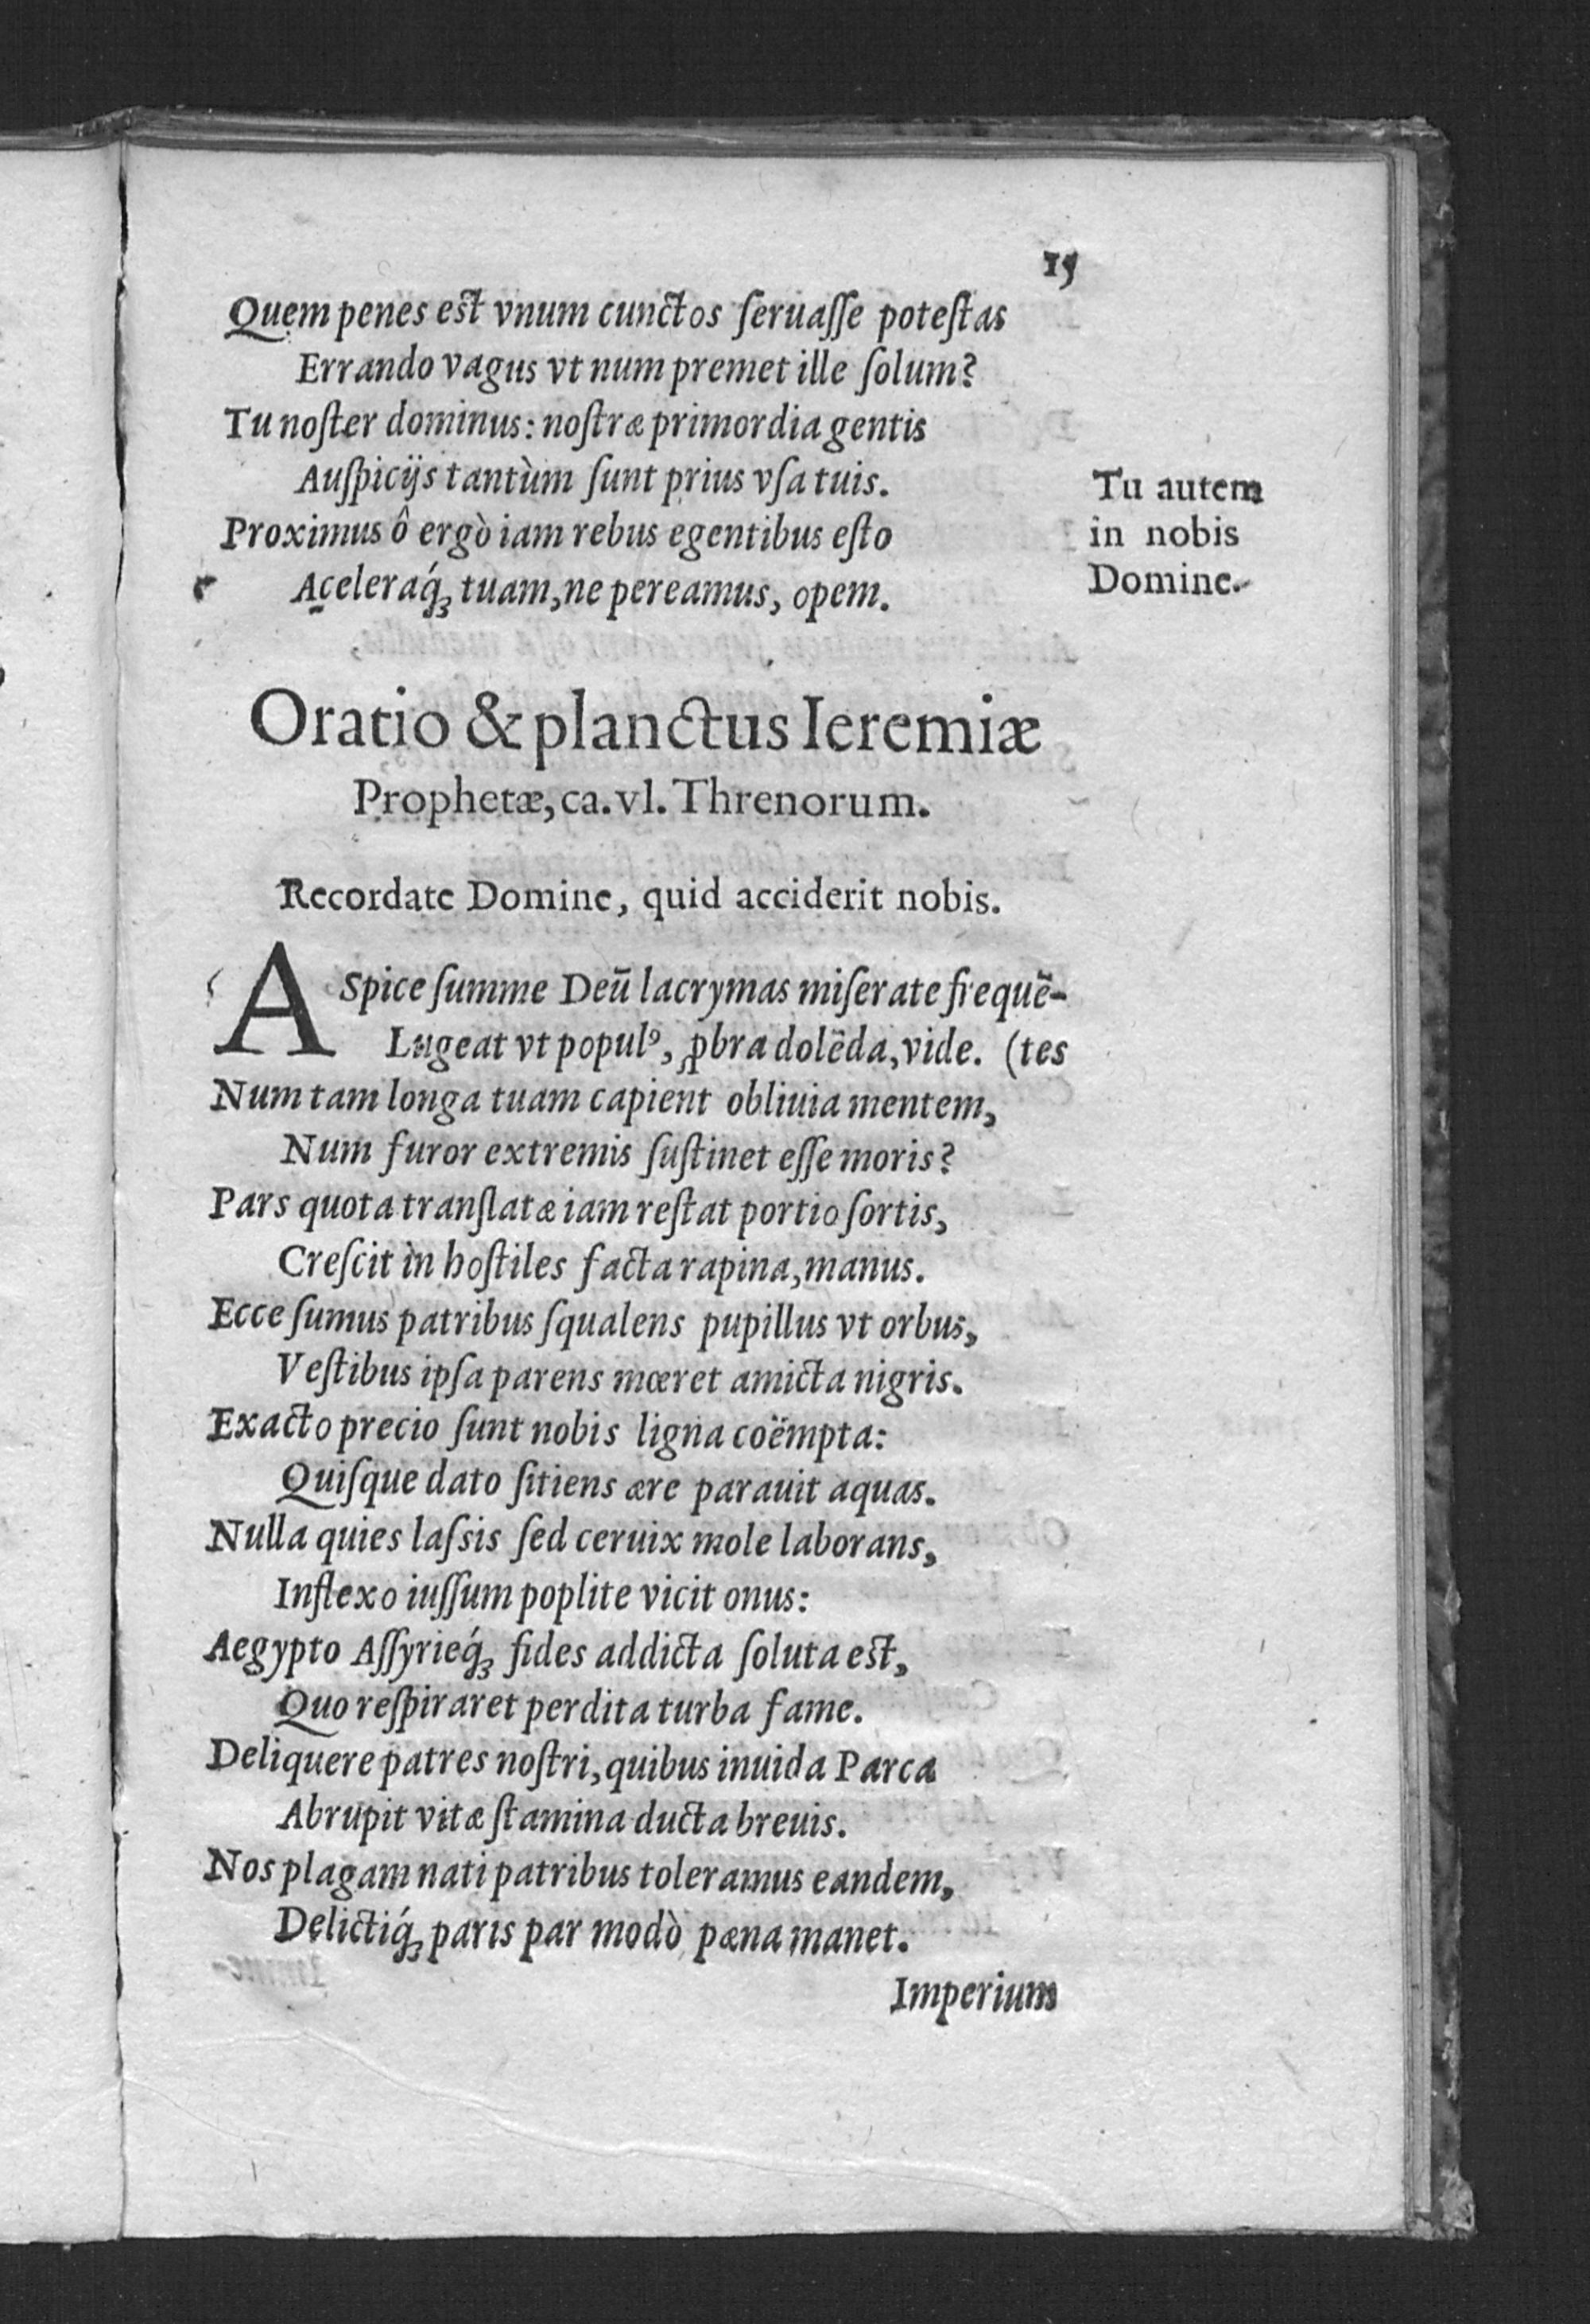 15
Quem penes est vnum cunctos ſeruaſſe poteſtas
Errando vagus vt num premet ille ſolum?
Tu noſter dominus: noſtræ primordia gentis
Auſpicijs tantùm ſunt prius vſa tuis.
Proximus ô ergò iam rebus egentibus eſto
Aceleraq́ꝫ tuam, ne pereamus, opem.
Tu autem
in nobis
Domine.
Oratio & planctus Ieremiæ
Prophetæ, ca. vl. Threnorum.
Recordate Domine, quid acciderit nobis.
ASpice ſumme Deũ lacrymas miſerate frequẽ-
Lugeat vt populꝰ, ꝓbra dolẽda, vide. (tes
Num tam longa tuam capient obliuia mentem,
Num furor extremis ſuſtinet eſſe moris?
Pars quota tranſlatæ iam reſtat portio ſortis,
Creſcit in hoſtiles facta rapina, manus.
Ecce ſumus patribus ſqualens pupillus vt orbus,
Veſtibus ipſa parens mœret amicta nigris.
Exacto precio ſunt nobis ligna coëmpta:
Quiſque dato ſitiens ære parauit aquas.
Nulla quies laſsis ſed ceruix mole laborans,
Inflexo iuſſum poplite vicit onus:
Aegypto Aſſyrieq́ꝫ fides addicta ſoluta est,
Quo reſpiraret perdita turba fame.
Deliquere patres noſtri, quibus inuida Parca
Abrupit vitæ ſtamina ducta breuis.
Nos plagam nati patribus toleramus eandem,
Delictiq́ꝫ paris par modò pæna manet.
Imperium